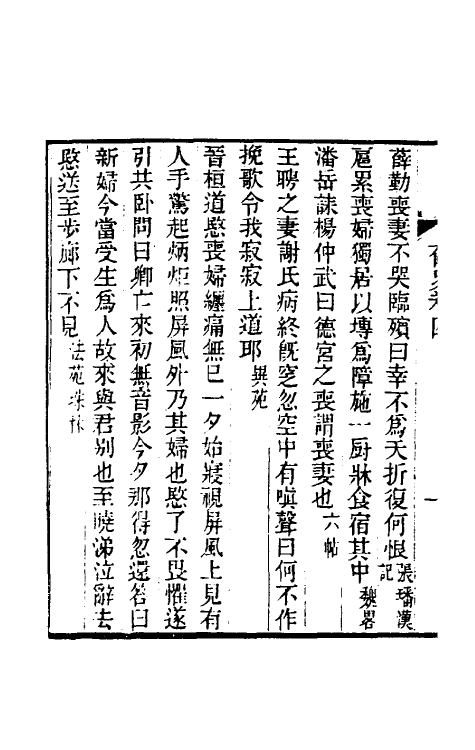 薛勤喪妻不哭臨殯曰幸不爲夭折復何恨張璠漢記
扈累喪婦獨居以塼爲障施一厨牀食宿其中魏畧
潘岳誄楊仲武曰德宮之喪謂喪妻也六帖
王聘之妻謝氏病終旣窆忽空中有嗔聲曰何不作
挽歌令我寂寂上道耶異苑
晉桓道愍喪婦纏痛無已一夕始寢視屏風上見有
人手驚起炳炬照屏風外乃其婦也愍了不畏懼遂
引共卧問曰卿亡來初無音影今夕那得忽還答曰
新婦今當受生爲人故來與君别也至曉涕泣辭去
愍送至步廊下不見法苑珠林